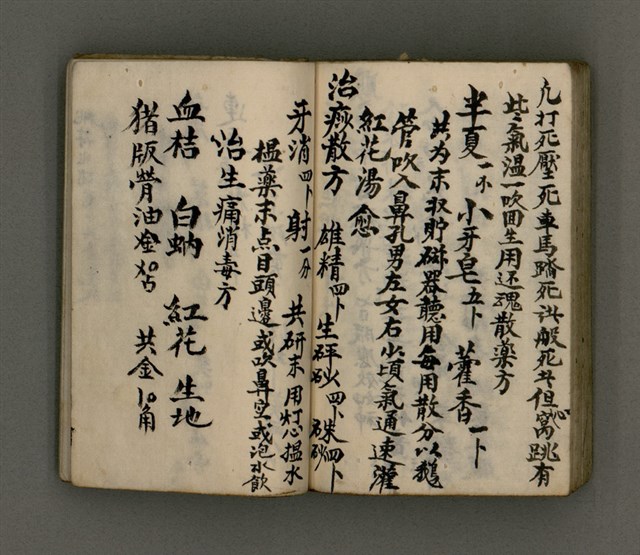 凡打死壓死車馬蹻死諸般死者但心窩跳有
些氣溫一吹回生用还魂散藥方
半夏一不 小牙皂五卜 藿香一卜
共为末收貯磁器聽用每用散分以鵝
管吹入鼻孔男左女右少頃氣通速灌
紅花湯愈
治痧散方 雄精四卜 生砰砂四卜 硃砂四卜
牙消四卜 射一分 共研末用灯心搵水
搵藥末点目頭邊或吹鼻空或泡水飲
治生痛消毒方
血桔 白蚋 紅花 生地
猪版膋油 共金10角